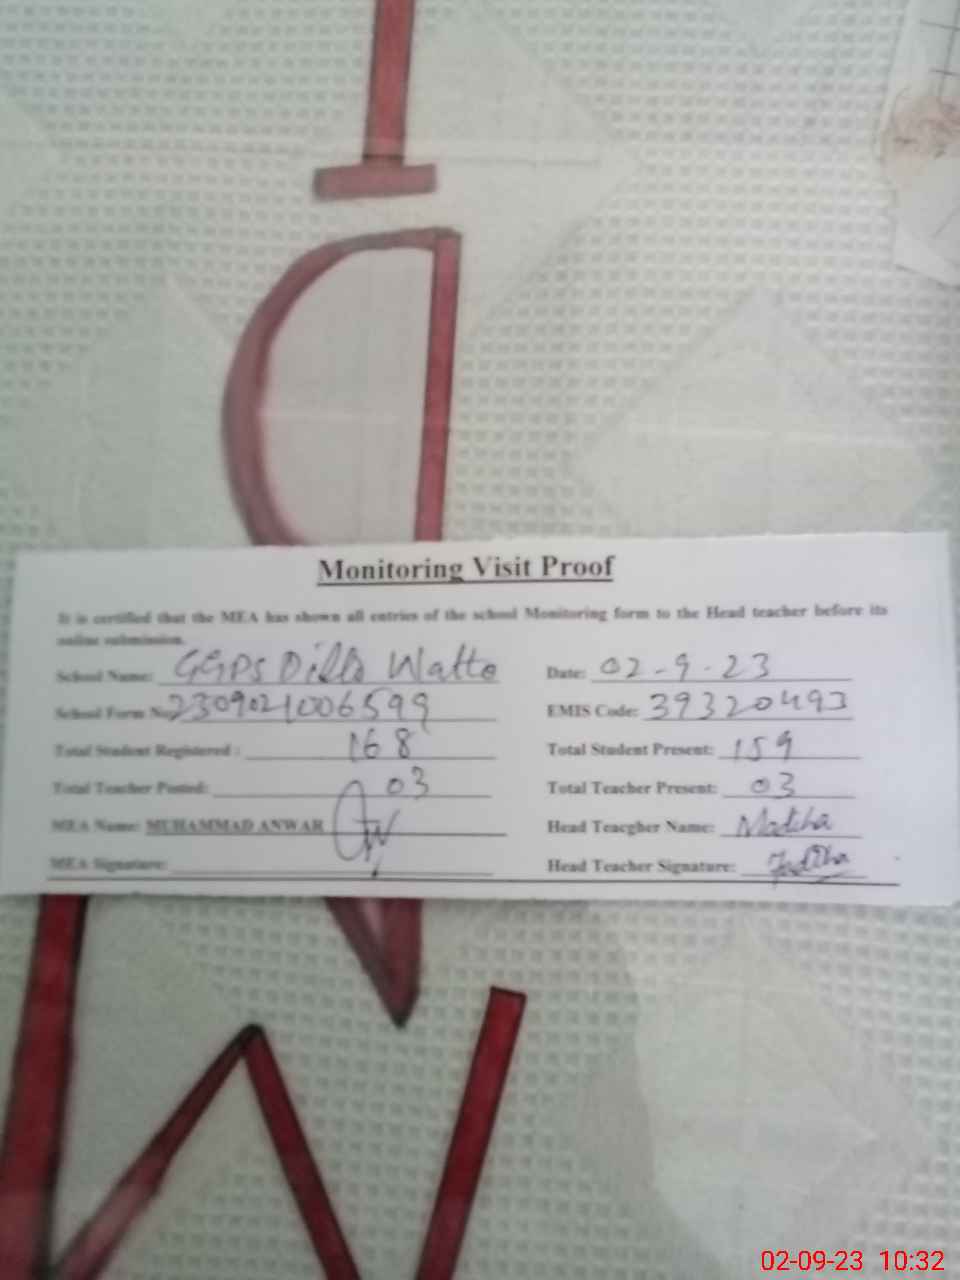 Monitoring Visit Proof
It is certified that the MEA has shown all entries of the school Monitoring form to the Head teacher before its
online submission.
School Name: GGPS Dillo Watto Date: 02-9-23
School Form No 2309021006599 EMIS Code: 39320493
Total Student Registered: 168 Total Student Present: 159
Total Teacher Posted: 03 Total Teacher Present: 03
MEA Name: MUHAMMAD ANWAR Head Teacgher Name: Madiha
MEA Signature: Head Teacher Signature:
02-09-23 10:32